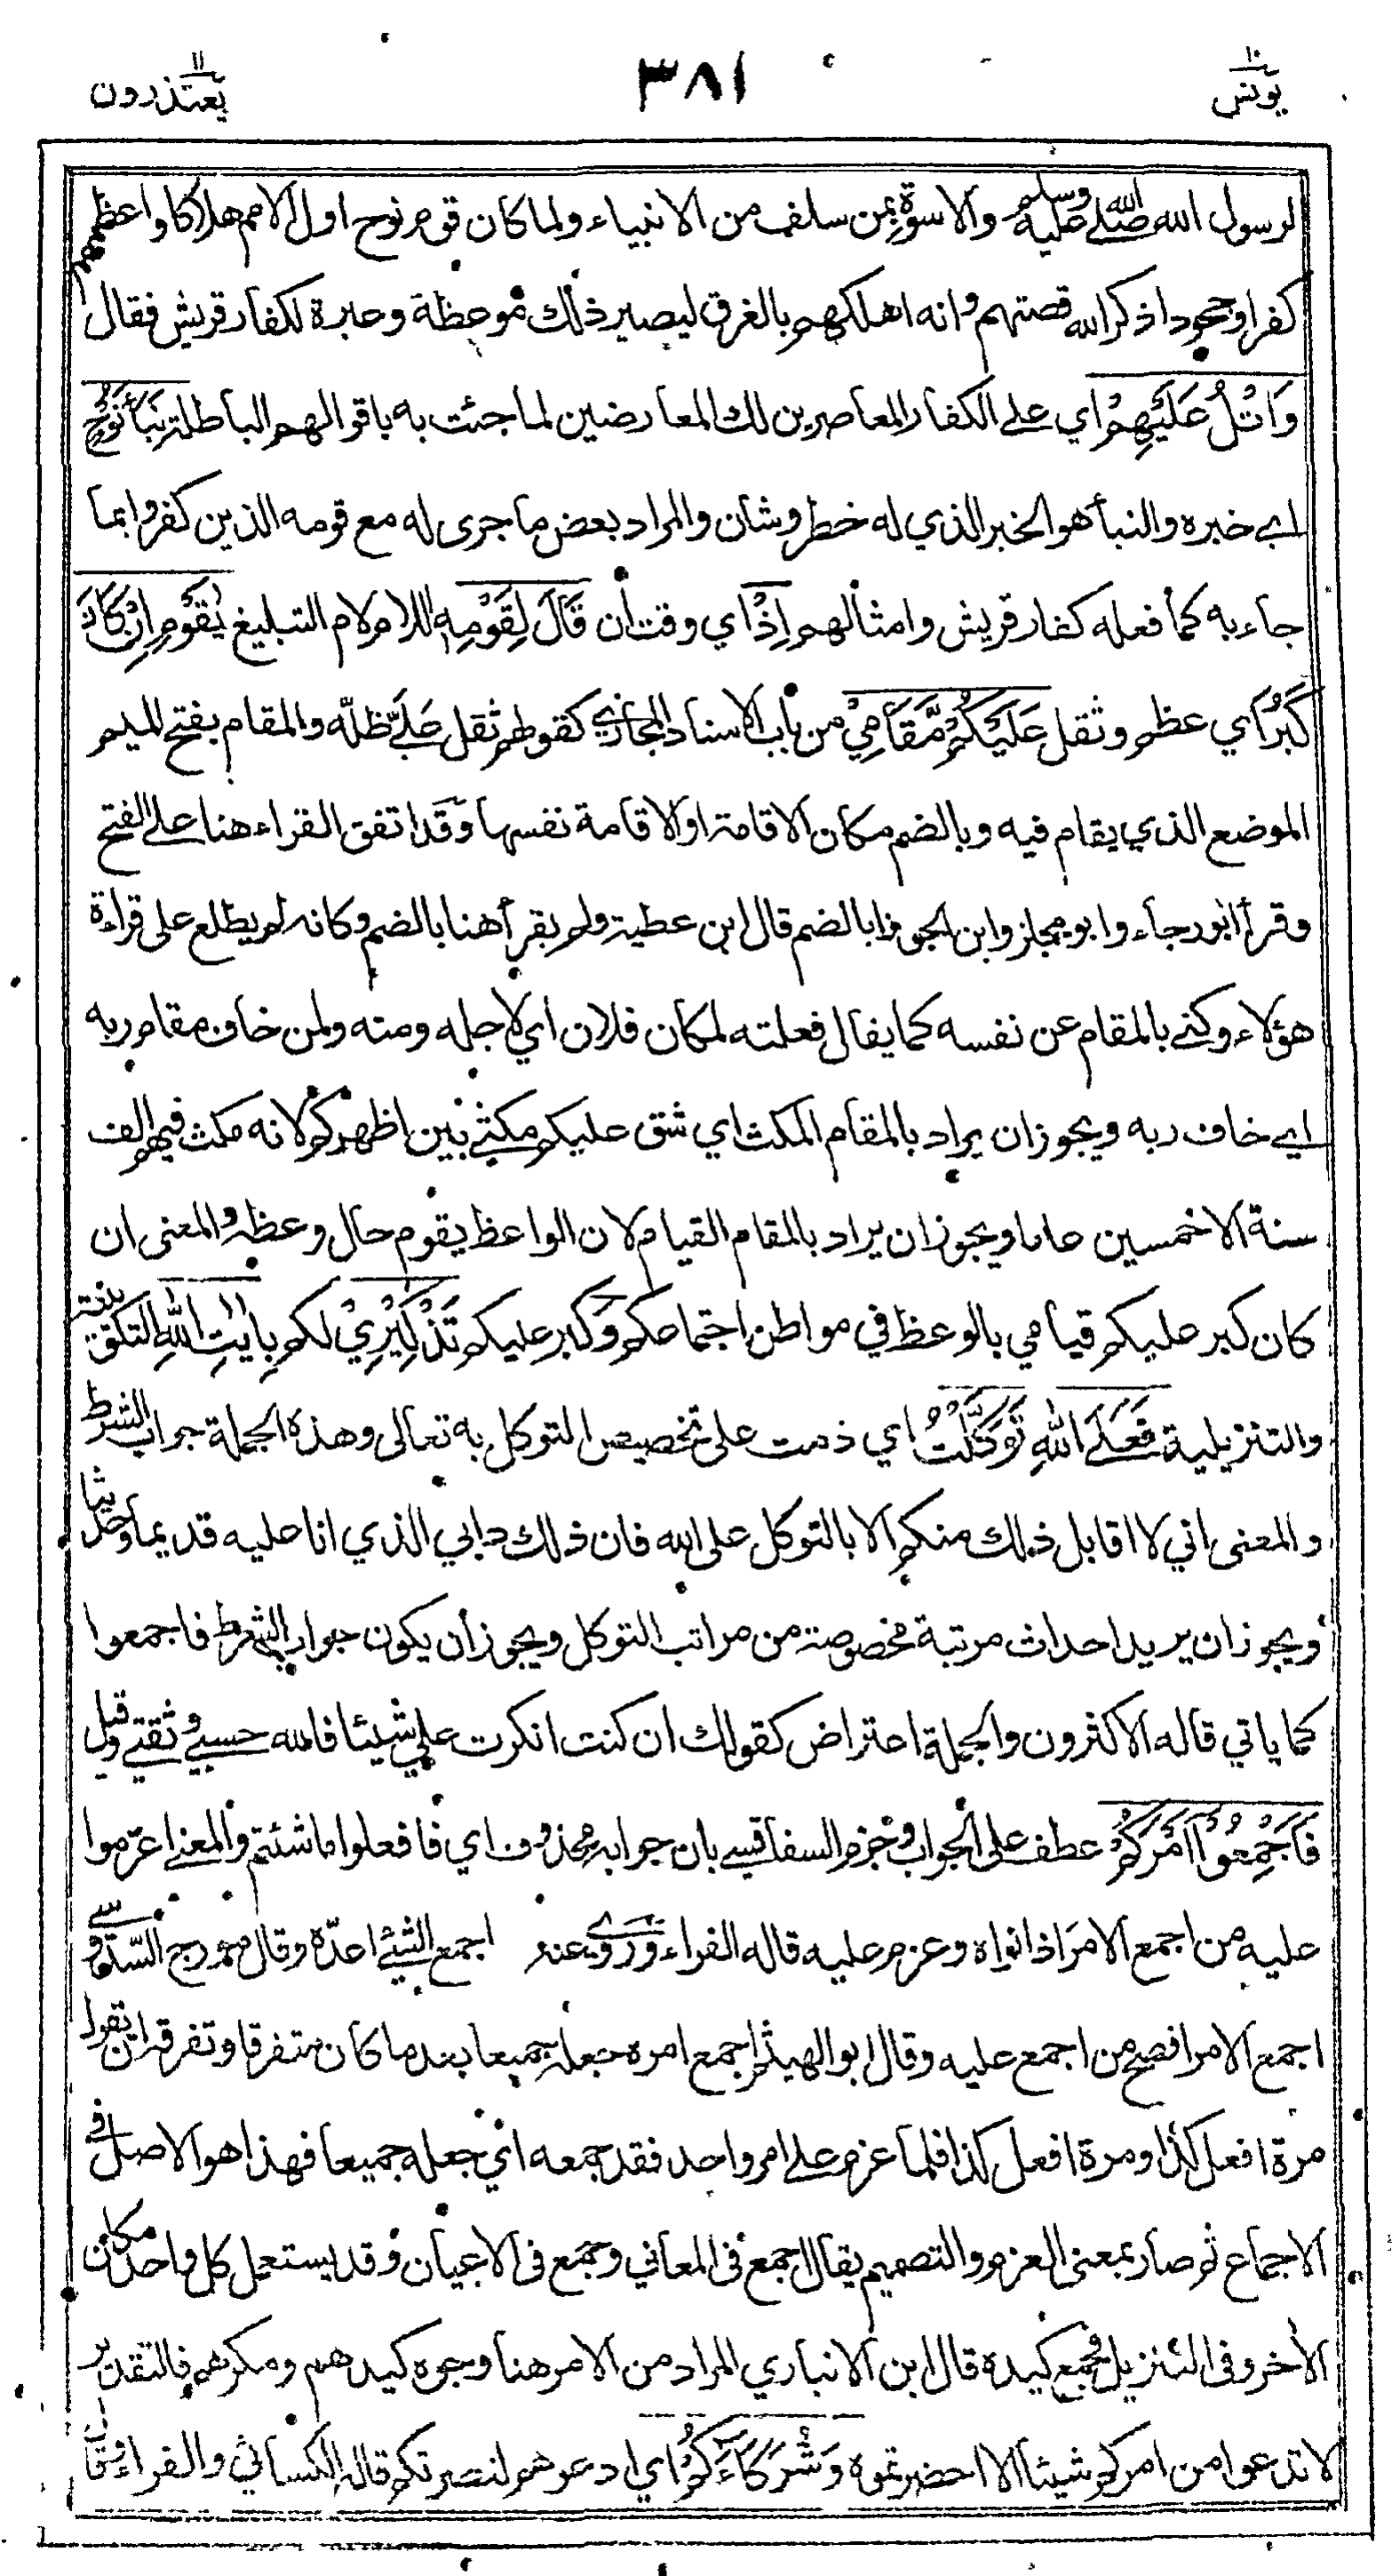 يونس ١٠
٣٨١
يعتذرون ١١
لرسول الله صلى الله عليه وسلم والاسوة بمن سلف من الانبياء ولما كان قوم نوح اول الامم هلاكا واعظمهم
كفرا وجحودا ذكر الله قصتهم وانه اهلكهم بالغرق ليصير ذلك موعظة وعبرة لكفار قريش فقال
وَاتْلُ عَلَيْهِمْ اي على الكفار المعاصرين لك المعارضين لما جئت به باقوالهم الباطلة نَبَأَ نُوْحٍ
اي خبره والنبأ هو الخبر الذي له خطر وشان والمراد بعض ما جرى له مع قومه الذين كفروا بما
جاء به كما فعله كفار قريش وامثالهم اِذْ اي وقت أن قَالَ لِقَوْمِهٖ اللام لام التبليغ يٰقَوْمِ اِنْ كَانَ
كَبُرَ اي عظم وثقل عَلَيْكُمْ مَّقَامِيْ من باب الاسناد المجازي كقولهم ثقل عَلَيَّ ظلّه والمقام بفتح الميم
الموضع الذي يقام فيه وبالضم مكان الاقامة او الاقامة نفسها وقد اتفق القراء هنا على الفتح
وقرأ ابو رجاء وابو مجلز وابن الجوزا بالضم قال ابن عطية ولم يقرأ هنا بالضم وكانه لم يطلع على قراءة
هؤلاء وكنى بالمقام عن نفسه كما يقال فعلته لمكان فلان اي لاجله ومنه ولمن خاف مقام ربه
اي خاف ربه ويجوز ان يراد بالمقام المكث اي شق عليكم مكثي بين اظهركم لانه مكث فيهم الف
سنة الا خمسين عاما ويجوز ان يراد بالمقام القيام لان الواعظ يقوم حال وعظه والمعنى ان
كان كبر عليكم قيامي بالوعظ في مواطن اجتماعكم وكبر عليكم تَذْكِيْرِيْ لكم بِاٰيٰتِ اللّٰهِ التكوينية
والتنزيلية فَعَلَى اللّٰهِ تَوَكَّلْتُ اي دمت على تخصيص التوكل به تعالى وهذه الجملة جواب الشرط
والمعنى اني لا اقابل ذلك منكم الا بالتوكل على الله فان ذلك دابي الذي انا عليه قديما وحديثا
ويجوز ان يريد احداث مرتبة مخصوصة من مراتب التوكل ويجوز أن يكون جواب الشرط فاجمعوا
كما ياتي قاله الاكثرون والجملة اعتراض كقولك ان كنت انكرت علي شيئا فالله حسبي وثقتي وقيل
فَاَجْمِعُوْٓا اَمْرَكُمْ عطف على الجواب وجزم السفاقسي بان جوابه محذوف اي فافعلوا ما شئتم والمعنى اعزموا
عليه من اجمع الامر اذا نواه وعزم عليه قاله الفراء وروي عنه اجمع الشيء اعدّه وقال مورج السدوسي
اجمع الامر افصح من اجمع عليه وقال ابو الهيثم اجمع امره جعله جميعا بعد ما كان متفرقا وتفرقه ان تقول
مرة افعل كذا ومرة افعل كذا فلما عزم على امر واحد فقد جمعه اي جعله جميعا فهذا هو الاصل في
الاجماع ثم صار بمعنى العزم والتصميم يقال اجمع في المعاني وجمع في الاعيان وقد يستعمل كل واحد مكان
الآخر وفي التنزيل فجمع كيده قال ابن الانباري المراد من الامر هنا وجوه كيدهم ومكرهم فالتقدير
لا تدعوا من امركم شيئا الا احضرتموه وَشُرَكَآءَكُمْ اي ادعوهم لنصرتكم قاله الكسائي والفراء وقال